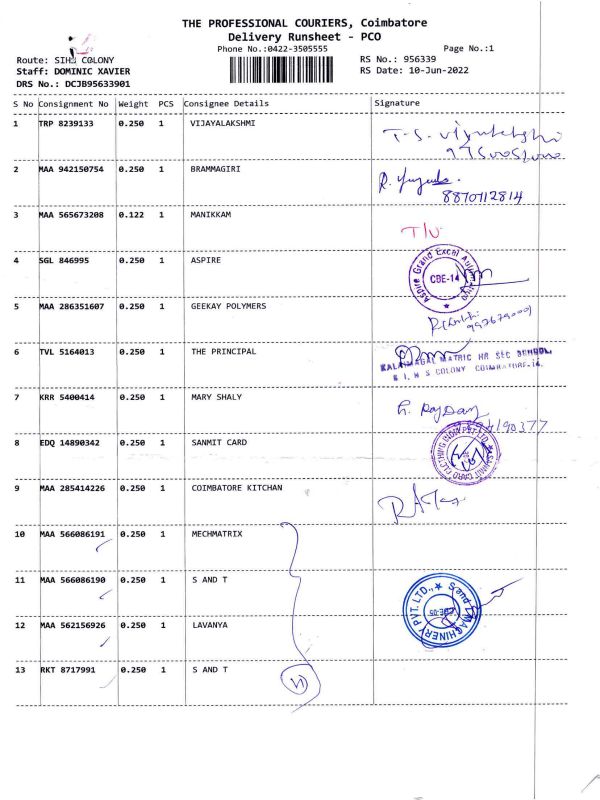 THE PROFESSIONAL COURIERS, Coimbatore
Delivery Runsheet - PCO
Phone No.:0422-3505555 Page No.:1
Route: SIHS COLONY RS No.: 956339
Staff: DOMINIC XAVIER RS Date: 10-Jun-2022
DRS No.: DCJB95633901
S No Consignment No Weight PCS Consignee Details Signature
1 TRP 8239133 0.250 1 VIJAYALAKSHMI
2 MAA 942150754 0.250 1 BRAMMAGIRI
8870712814
3 MAA 565673208 0.122 1 MANIKKAM
4 SGL 846995 0.250 1 ASPIRE
Aspire Grand Excel
CBE-14
5 MAA 286351607 0.250 1 GEEKAY POLYMERS
6 TVL 5164013 0.250 1 THE PRINCIPAL
MATRIC HR SEC SCHOOL
S I H S COLONY COIMBATORE-14.
7 KRR 5400414 0.250 1 MARY SHALY
8 EDQ 14890342 0.250 1 SANMIT CARD
9 MAA 285414226 0.250 1 COIMBATORE KITCHAN
10 MAA 566086191 0.250 1 MECHMATRIX
11 MAA 566086190 0.250 1 S AND T
S and T MACHINERY PVT. LTD.,
CBE-05
12 MAA 562156926 0.250 1 LAVANYA
13 RKT 8717991 0.250 1 S AND T